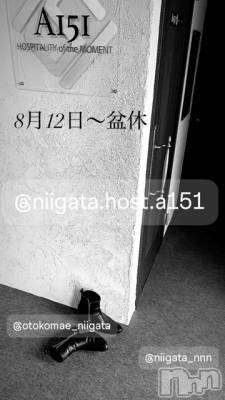 A151
HOSPITALITY of the MOMENT
8月12日〜盆休
@niigata.host.a151
@otokomae_niigata
@niigata_nnn
nnn